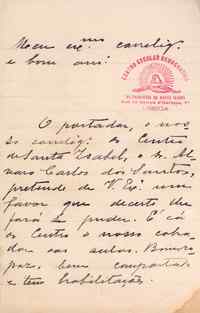 Meu ex.mo correlig.
e bom am.
CENTRO ESCOLAR REPUBLICANO
LISBOA
O portador, o nos-
so correlig. do Centro
de Santa Isabel, o sr. Al-
varo Carlos dos Santos,
pretende de V. Ex. um
favor que decerto lhe
fará se puder. É cá
do Centro o nosso cobra-
dor das aulas. Bom ra-
paz, bem comportado
e tem habilitações.